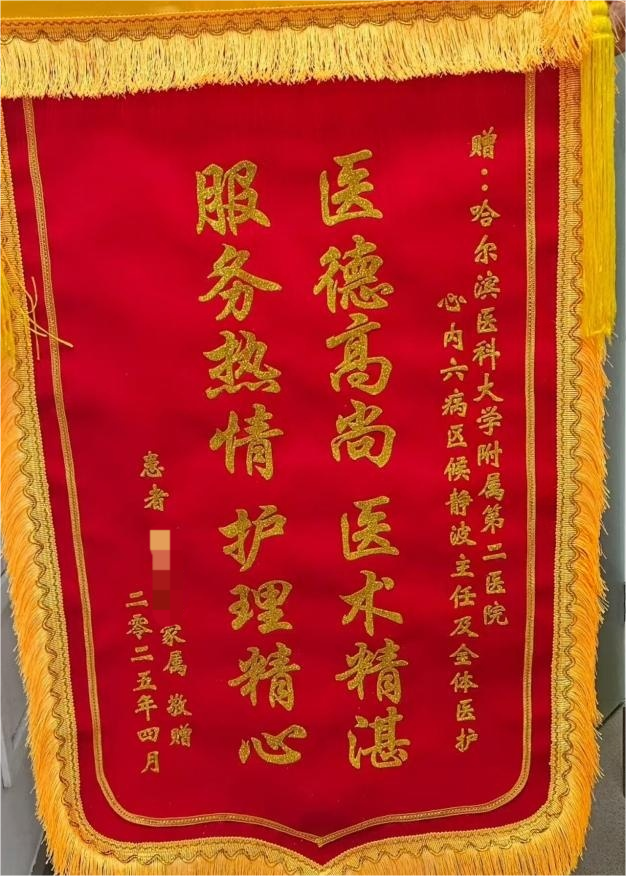 赠：哈尔滨医科大学附属第二医院
心内六病区候静波主任及全体医护
医德高尚 医术精湛
服务热情 护理精心
患者 家属 敬赠
二零二五年四月